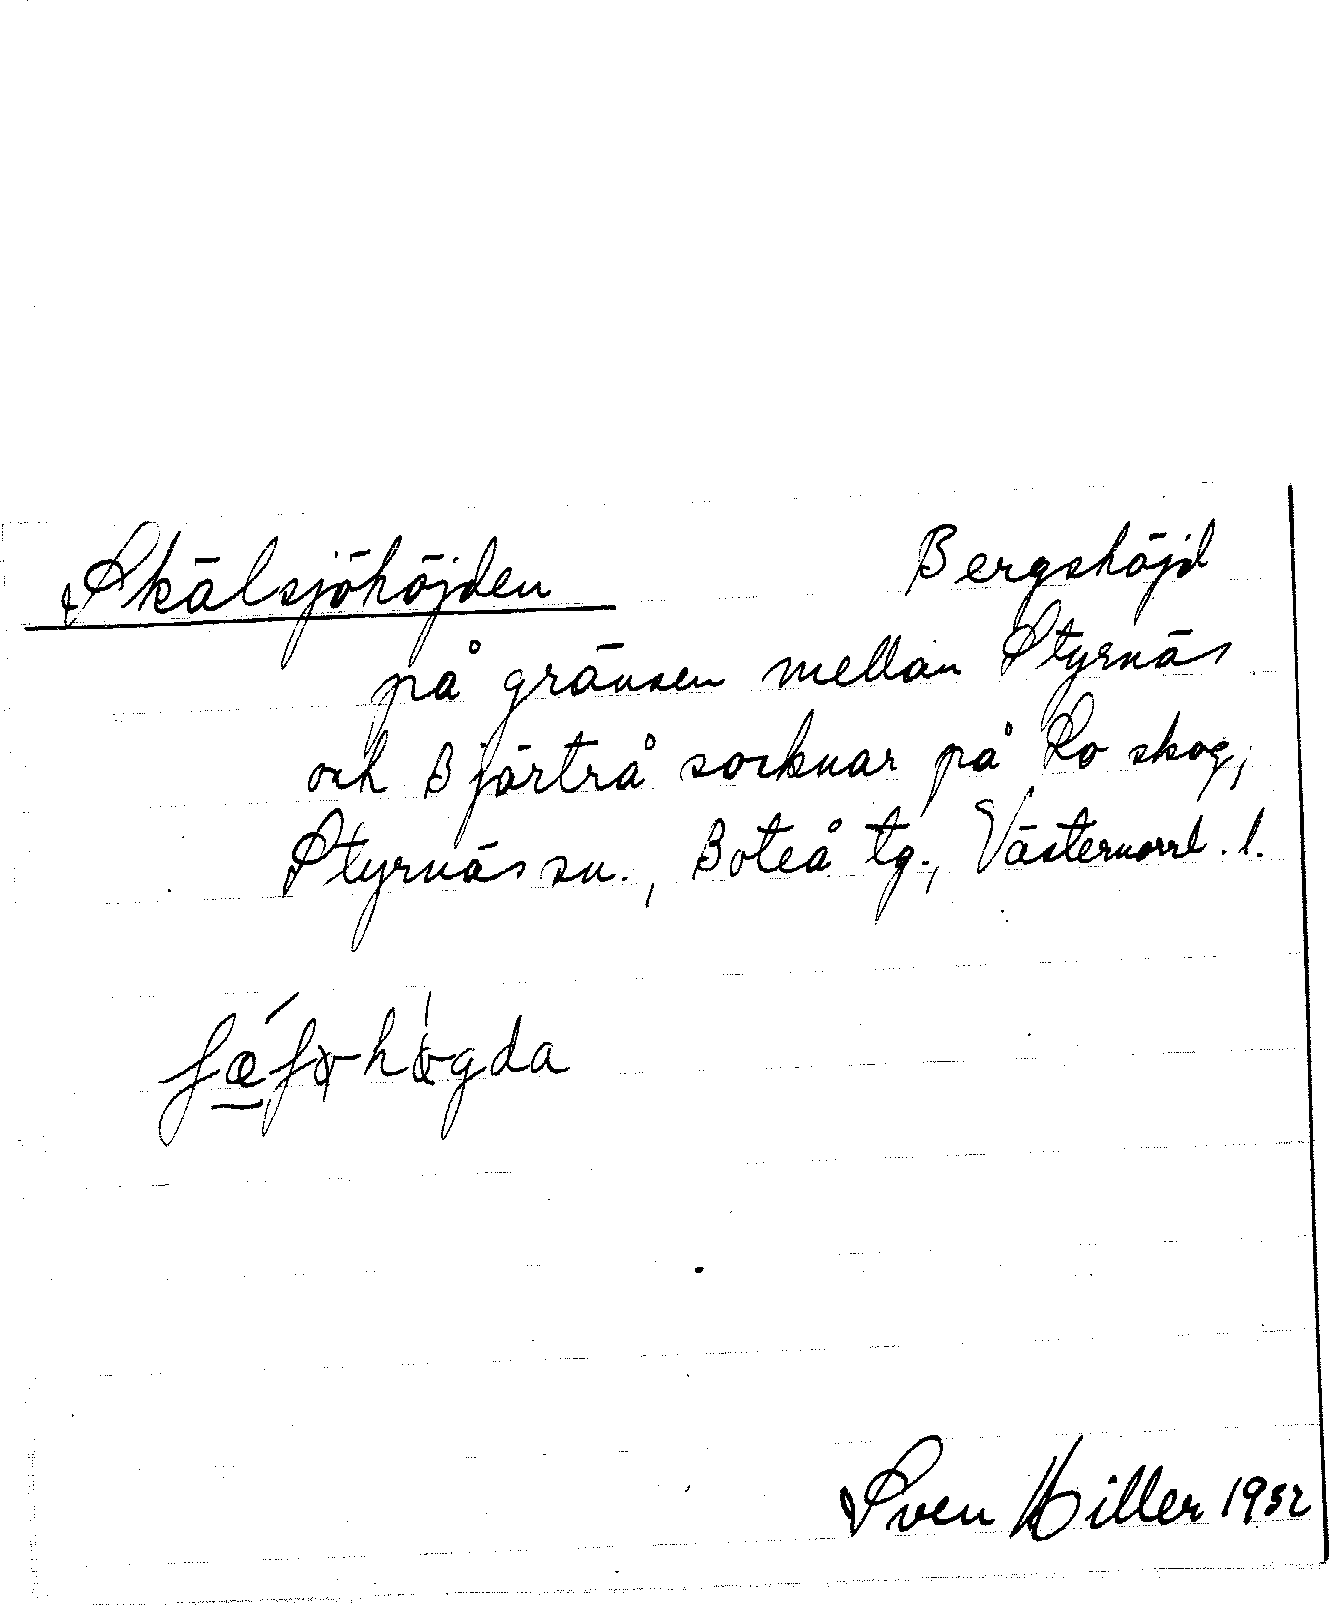 Skälsjöhöjden Bergshöjd
på gränsen mellan Styrnäs
och Bjärtrå socknar på Lo skog,
Styrnäs sn., Boteå tg., Västernorrl. l.
Sven Hiller 1932